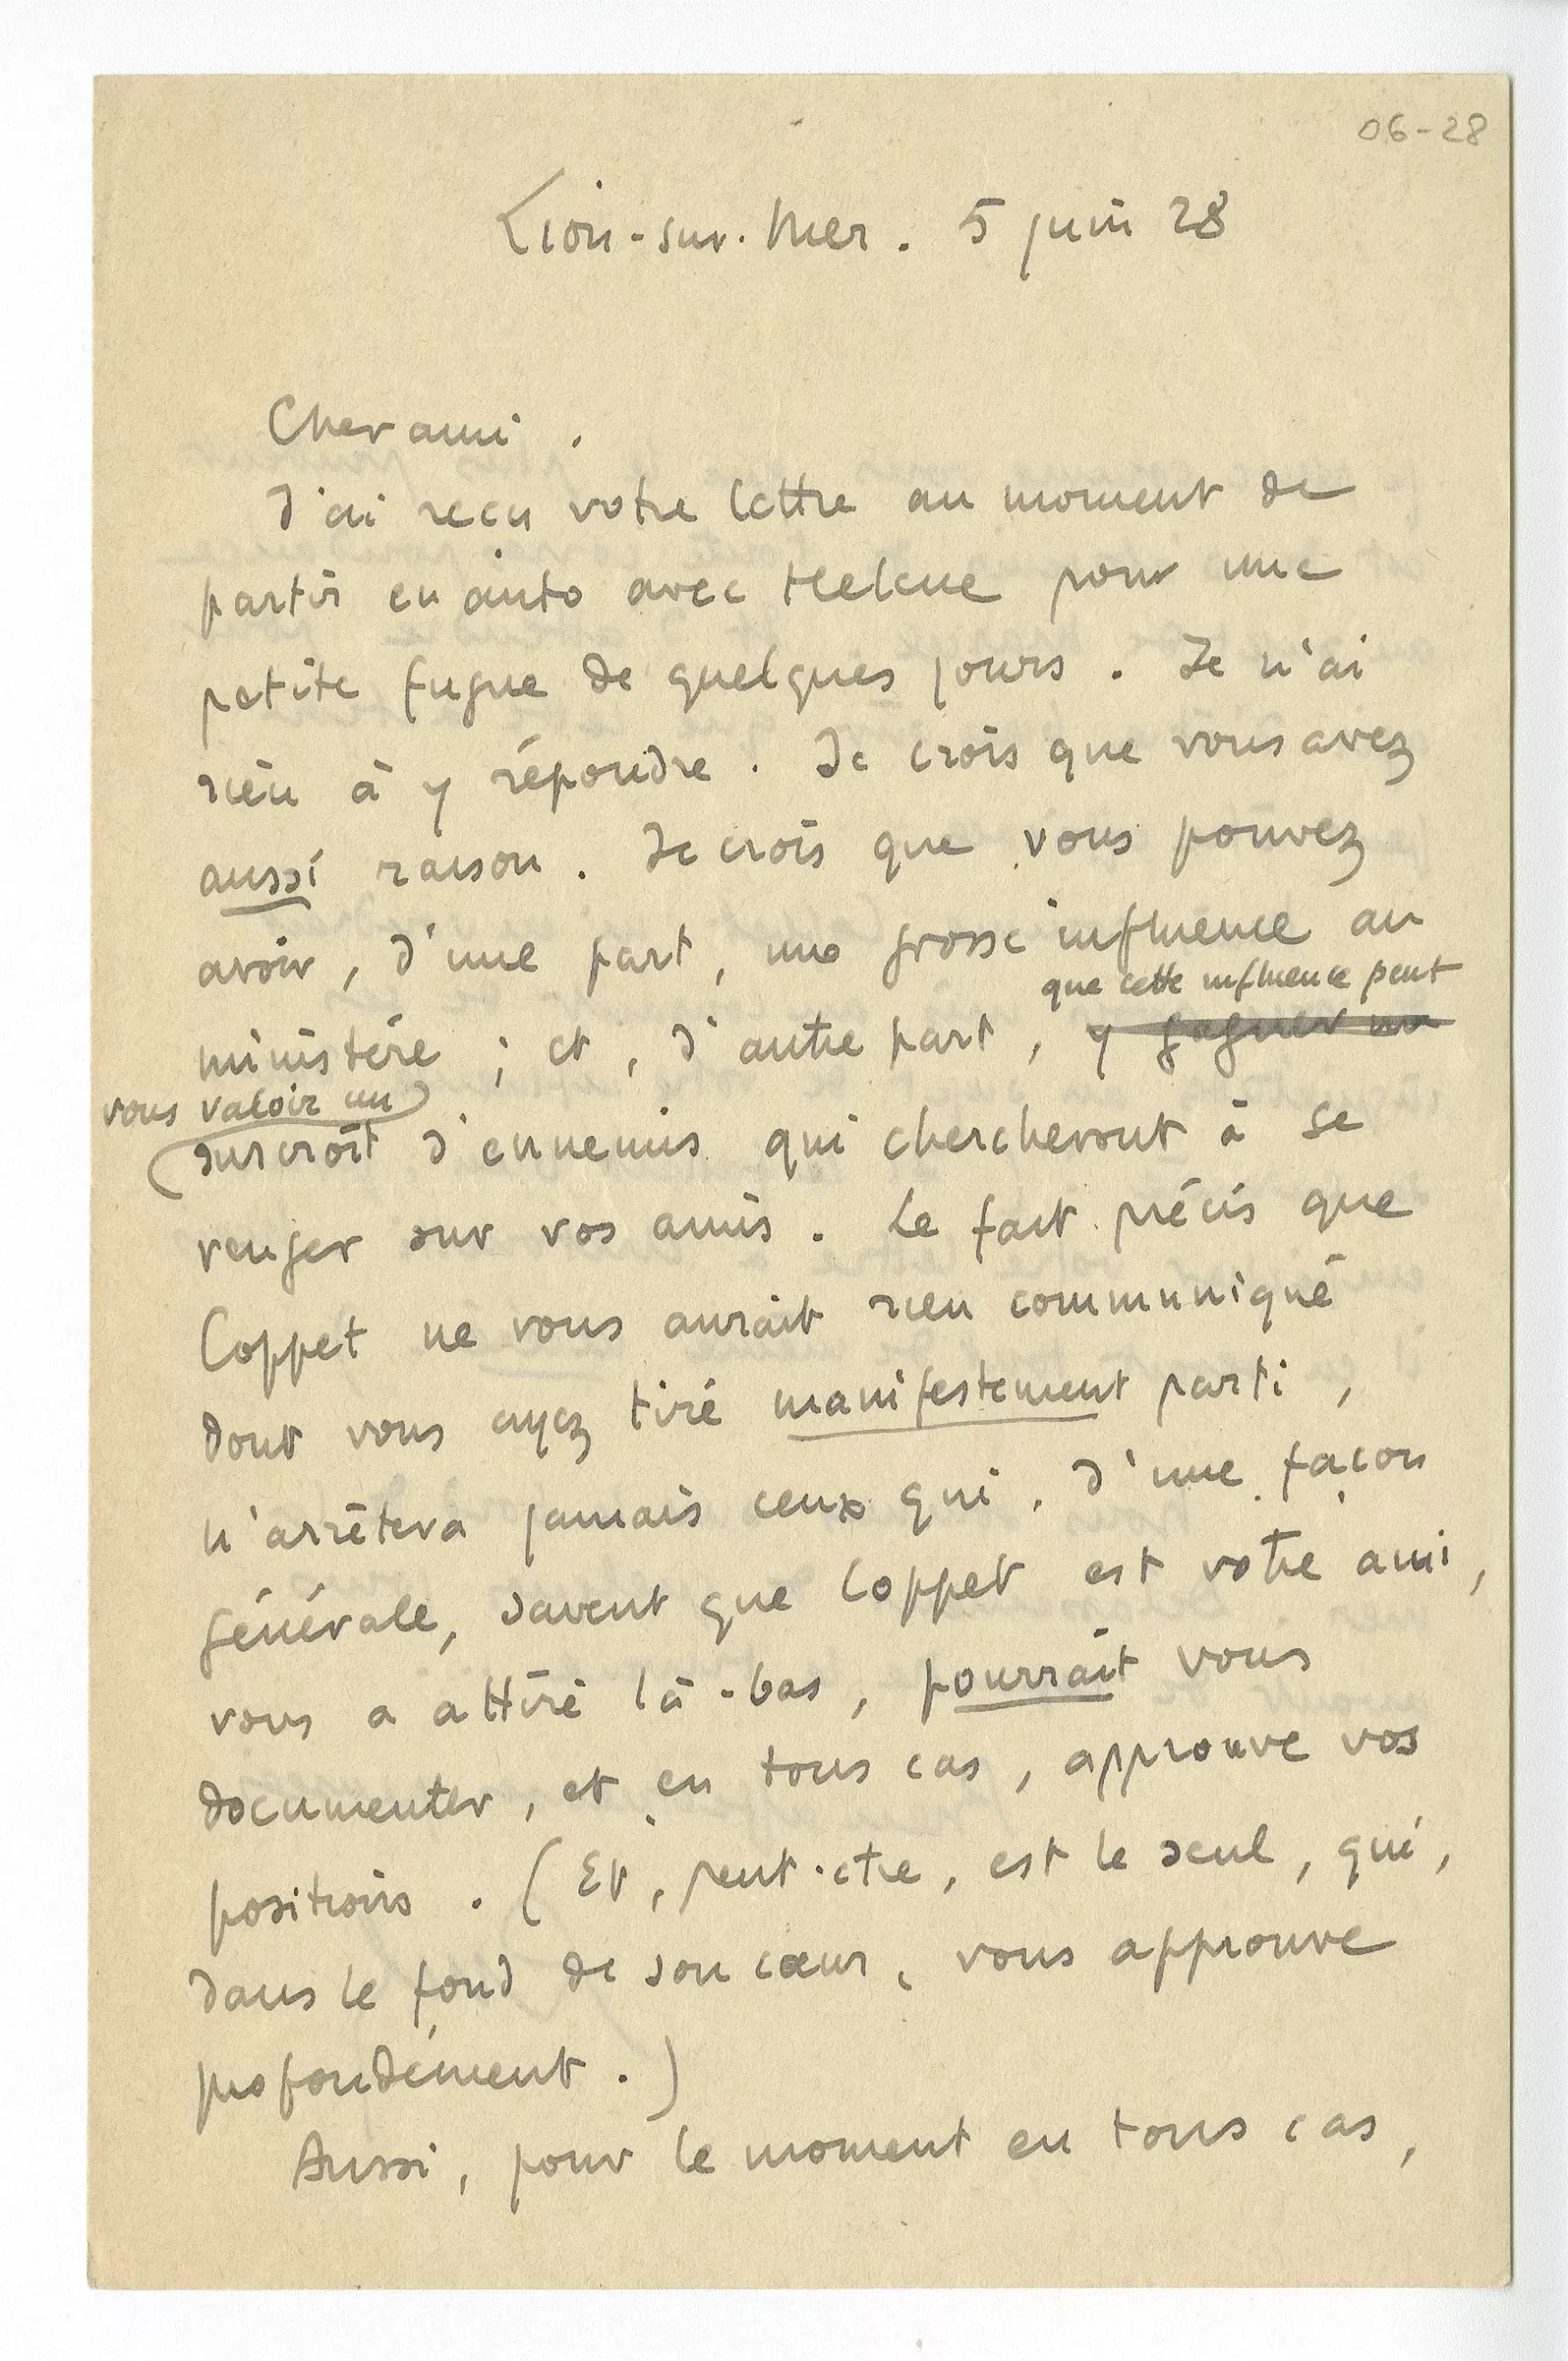 06-28
Lion-sur-Mer. 5 juin 28
Cher ami.
J'ai reçu votre lettre au moment de
partir en auto avec Hélène pour une
petite fugue de quelques jours. Je n'ai
rien à y répondre. Je crois que vous avez
aussi raison. Je crois que vous pouvez
avoir, d'une part, une grosse influence au
que cette influence peut
ministère ; et, d'autre part, y gagner un
vous valoir un
surcroît d'ennemis qui chercheront à se
venger sur vos amis. Le fait précis que
Coppet ne vous aurait rien communiqué
dont vous ayez tiré manifestement parti,
n'arrêtera jamais ceux qui, d'une façon
générale, savent que Coppet est votre ami,
vous a attiré là-bas, pourrait vous
documenter, et en tous cas, approuve vos
positions. (Et, peut-être, est le seul, qui,
dans le fond de son cœur, vous approuve
profondément.)
Aussi, pour le moment en tous cas,